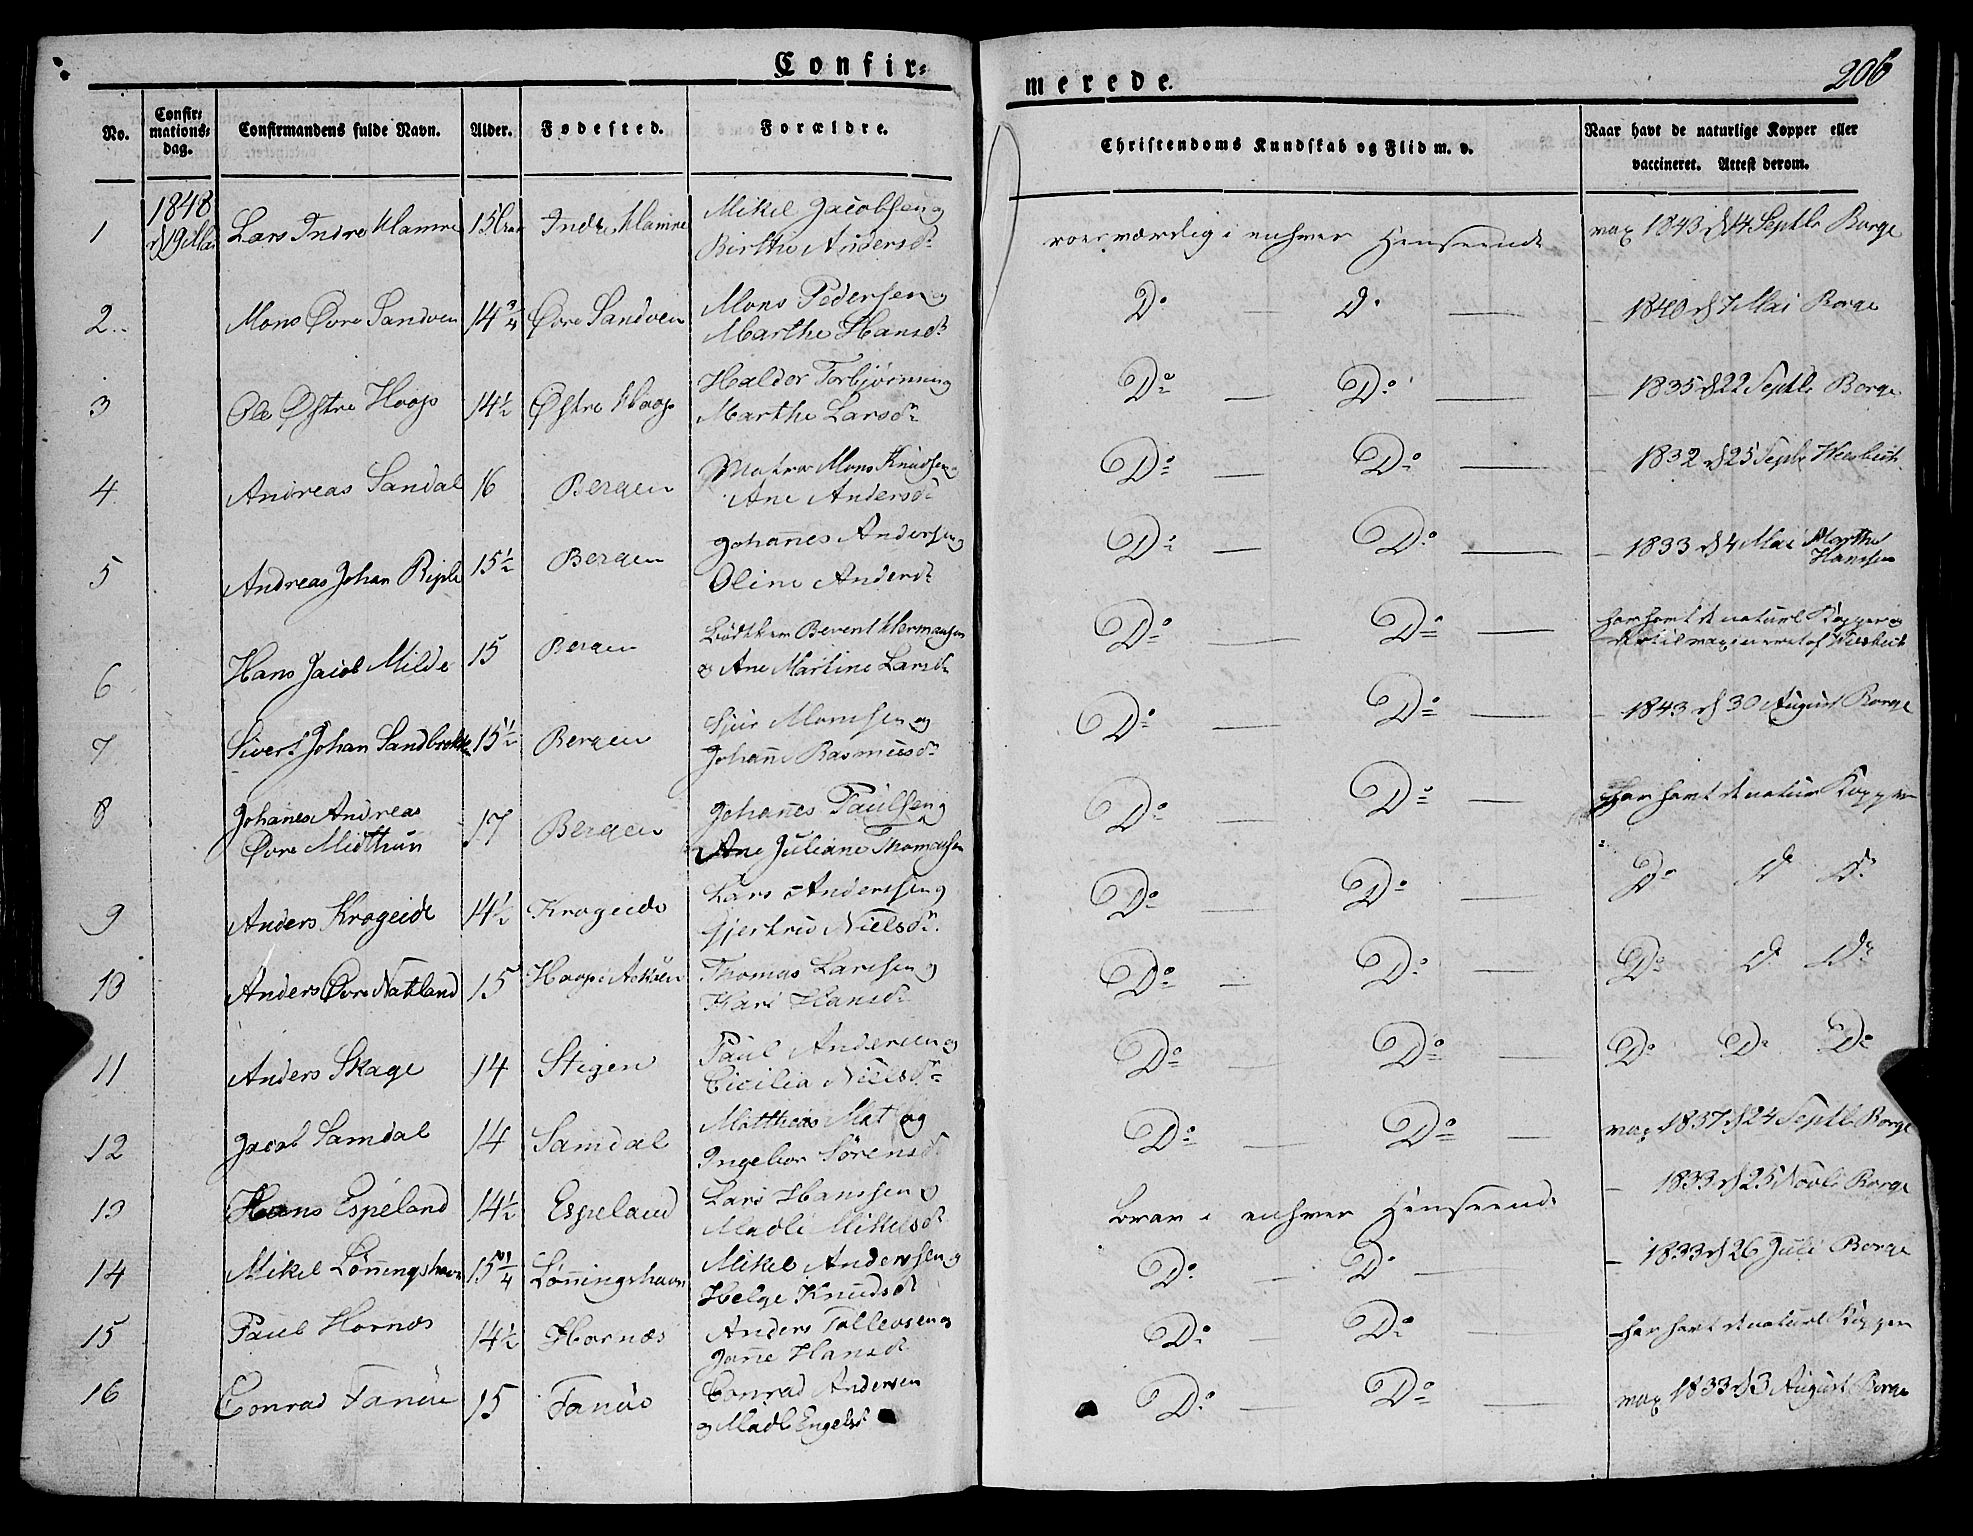 Confir=
merede.
206
No.
Confir=
mations=
dag.
Confirmandens fulde Navn.
Alder.
Fødested.
Forældre.
Christendoms Kundskab og Flid m. v.
Naar havt de naturlige Kopper eller
vaccineret. Attest derom.
1848
1 Lars Indre Hamre 15 Indre Hamre Mikel Jacobsen og
Birthe Andersdr
værdig i enhver Henseende vax 1843 d 14 Septbr Borge
2 Mons Øvre Sandven 14 3/4 Øvre Sandven Mons Pedersen og
Marthe Hansdr
Do — Do — — 1840 d 7 Mai Borge
3 Ole Østre Hoop 14 1/2 Østre Hoop Halder Torbjørnsen og
Marthe Larsdr
Do — Do — — 1835 d 22 Septbr Borge
4 Andreas Sandal 16 Bergen Matros Mons Knudsen og
Ane Andersdr
Do — Do — — 1832 d 25 Septbr
5 Andreas Johan Riple 15 1/2 Bergen Johannes Andersen og
Oline Andersdr
Do — Do — — 1833 d 4 Mai Marthe
Hanssen
6 Hans Jacob Milde 15 Bergen Bødtker Berent Hermansen
og Ane Martine Larsdr
Do — Do — har havt de naturl Kopper og
7 Sivert Johan Sandbrekke 15 1/2 Bergen Sjur Monssen og
Johanne Rasmusdr
Do — Do — — 1843 d 30 August Borge
8 Johanes Andreas
Øvre Midthun 17 Bergen Johanes Paulsen og
Ane Juliane Thomassen
Do — Do — har havt de natur Kopper
9 Anders Krogeide 14 1/2 Krogeide Lars Anderssen og
Gjertrud Nielsdr
Do — Do — Do Do Do
10 Anders Øvre Natland 15 Hoop i Askøen Thomas Larssen og
Kari Hansdr
Do — Do — Do Do Do
11 Anders Skage 14 Stigen Paul Andersen og
Cicilia Nielsdr
Do — Do — Do Do Do
12 Jacob Samdal 14 Samdal Matthias Mat og
Ingebor Sørensdr
Do — Do — vax 1837 d 24 Septbr Borge
13 Hans Espeland 14 1/2 Espeland Lars Hanssen og
Madli Mikelsdr
brav i enhver Henseende — 1833 d 25 Novbr Borge
14 Mikel Lønningshavn 15 1/4 Lønningshavn Mikel Anderssen og
Helge Knudsdr
Do — Do — — 1833 d 26 Juli Borge
15 Paul Hornæs 14 1/2 Hornæs Anders Tollevsen og
Janne Hansdr
Do — Do — har havt de naturl Kopper
16 Conrad Fanøe 15 Fanøe Conrad Andersen
og Madli Engelsdr
Do — Do — vax 1833 d 3 August Borge